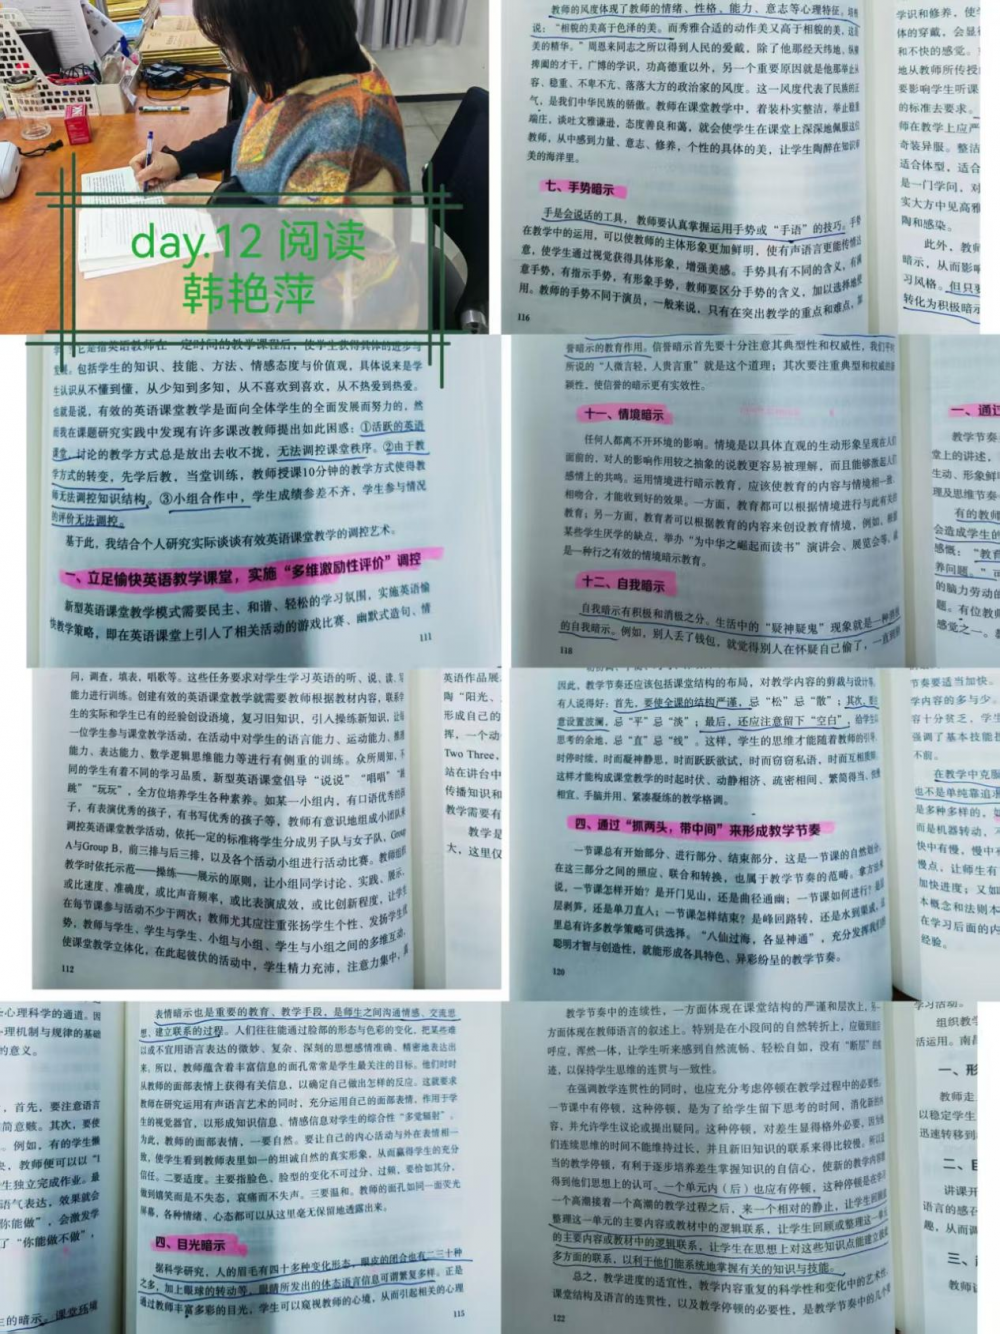 day.12 阅读
韩艳萍
教师的风度体现了教师的情绪、性格、能力、意志等心理特征。培根
说：“相貌的美高于色泽的美。而秀雅合适的动作美又高于相貌的美，这是
美的精华。”周恩来同志之所以得到人民的爱戴，除了他那经天纬地、纵横
捭阖的才干，广博的学识，功高德重以外，另一个重要原因就是他那举止从
容、稳重、不卑不亢、落落大方的政治家的风度。这一风度代表了民族的正
气，是我们中华民族的骄傲。教师在课堂教学中，着装朴实整洁，举止稳重
端庄，谈吐文雅谦逊，态度善良和蔼，就会使学生在课堂上深深地佩服这位
教师，从中感到力量、意志、修养，个性的具体的美，让学生陶醉在知识审
美的海洋里。
七、手势暗示
手是会说话的工具，教师要认真掌握运用手势或“手语”的技巧。手势
在教学中的运用，可以使教师的主体形象更加鲜明，使有声语言更能传情达
意，使学生通过视觉获得具体形象，增强美感。手势具有不同的含义，有满
意手势，有指示手势，有形象手势，教师要区分手势的含义，加以选择地使
用。教师的手势不同于演员，一般来说，只有在突出教学的重点和难点，
116
学识和修养，使
体的穿戴，会显
和不快的感觉。
地从教师所传授
要影响学生听课
的标准去要求。
师在教学上应严
奇装异服。整洁
适合体型，适合
是一门学问，对
实大方中见高雅
陶和感染。
此外，教师
暗示，从而影响
习风格。但只要
转化为积极暗示
它是指英语教师在一定时间的教学课程后，使学生获得具体的进步与
发展。包括学生的知识、技能、方法、情感态度与价值观，具体说来是学
生认识从不懂到懂，从少知到多知，从不喜欢到喜欢，从不热爱到热爱。
也就是说，有效的英语课堂教学是面向全体学生的全面发展而努力的，然
而我在课题研究实践中发现有许多课改教师提出如此困惑：①活跃的英语
课堂，讨论的教学方式总是放出去收不拢，无法调控课堂秩序。②由于教
学方式的转变，先学后教，当堂训练，教师授课10分钟的教学方式使得教
师无法调控知识结构。③小组合作中，学生成绩参差不齐，学生参与情况
的评价无法调控。
基于此，我结合个人研究实际谈谈有效英语课堂教学的调控艺术。
一、立足愉快英语教学课堂，实施“多维激励性评价”调控
新型英语课堂教学模式需要民主、和谐、轻松的学习氛围，实施英语愉
快教学策略，即在英语课堂上引入了相关活动的游戏比赛、幽默式造句、情
111
誉暗示的教育作用。信誉暗示首先要十分注意其典型性和权威性，我们平时
所说的“人微言轻，人贵言重”就是这个道理；其次要注重典型和权威的新
颖性，使信誉的暗示更有实效性。
十一、情境暗示
任何人都离不开环境的影响。情境是以具体直观的生动形象呈现在人们
面前的，对人的影响作用较之抽象的说教更容易被理解，而且能够激起人们
感情上的共鸣。运用情境进行暗示教育，应该使教育的内容与情境相一致、
相吻合，才能收到好的效果。一方面，教育都可以根据情境进行与此有关的
教育；另一方面，教育者可以根据教育的内容来创设教育情境，例如，根据
某些学生厌学的缺点，举办“为中华之崛起而读书”演讲会、展览会等，就
是一种行之有效的情境暗示教育。
十二、自我暗示
自我暗示有积极和消极之分。生活中的“疑神疑鬼”现象就是一种消极
的自我暗示。例如，别人丢了钱包，就觉得别人在怀疑自己偷了，一直到别
118
一、通过
教学节奏
堂上的讲述，
生动、形象鲜
理及思维节奏
有的教师
会造成学生的
感慨：“教
养问题。”
的脑力劳动的
题。有位教师
感觉之一。
问，调查，填表，唱歌等。这些任务要求对学生学习英语的听、说、读、写
能力进行训练。创建有效的英语课堂教学就需要教师根据教材内容，联系学
生的实际和学生已有的经验创设语境，复习旧知识，引入操练新知识，让每
一位学生参与课堂教学活动，在活动中对学生的语言能力、运动能力、推理
能力、表达能力、数学逻辑思维能力等进行有侧重的训练。众所周知，不
同的学生有着不同的学习品质，新型英语课堂倡导“说说”“唱唱”“跳
跳”“玩玩”，全方位培养学生各种素养。如某一小组内，有口语优秀的孩
子，有表演优秀的孩子，有书写优秀的孩子等，教师有意识地组成小团队来
调控英语课堂教学活动，依托一定的标准将学生分成男子队与女子队，Group
A与Group B，前三排与后三排，以及各个活动小组进行活动比赛。教师组织
教学时依托示范——操练——展示的原则，让小组同学讨论、实践、展示，
或比速度、准确度，或比声音频率，或比表演成效，或比创新程度，让学生
在每节课参与活动不少于两次；教师尤其应注重张扬学生个性，发扬学生优
势，教师与学生、学生与学生、小组与小组、学生与小组之间的多维互动，
使课堂教学立体化，在此起彼伏的活动中，学生精力充沛，注意力集中，
112
英语作品展
陶“阳光、
形成自己的
挥，一个动
Two Three,
站在讲台中
传播知识和
教学需要有
教学是
大，这里仅
因此，教学节奏还应该包括课堂结构的布局，对教学内容的剪裁与设计等。
有人说得好：首先，要使全课的结构严谨，忌“松”忌“散”；其次，要注
意设置波澜，忌“平”忌“淡”；最后，还应注意留下“空白”，给学生以
思考的余地，忌“直”忌“线”。这样，学生的思维才能随着教师的引导，
时停时续，时而凝神静思，时而跃跃欲试，时而窃窃私语，时而互相
这样才能构成课堂教学的时起时伏、动静相济、疏密相间、繁简得当、快慢
相宜、手脑并用、紧凑凝练的教学格调。
四、通过“抓两头，带中间”来形成教学节奏
一节课总有开始部分、进行部分、结束部分，这是一节课的自然划分。
在这三部分之间的照应、联合和转换，也属于教学节奏的范畴。拿方法来
说，一节课怎样开始？是开门见山，还是曲径通幽；一节课如何进行？是层
层剥笋，还是单刀直入；一节课怎样结束？是峰回路转，还是水到渠成，这
里总有许多教学策略可供选择。“八仙过海，各显神通”，充分发挥我们的
聪明才智与创造性，就能形成各具特色、异彩纷呈的教学节奏。
120
节要适当加快。
学内容的多与少。
容十分贫乏，学生
强调了基本技能技
不前。
在教学中克服
也不是单纯靠追求
是多种多样的，
而是机器转动、
快中有慢，慢中
慢点，让师生有
加快进度；又如
本概念和法则本
在学习后面的内
经验。
心理科学的通道。因
理机制与规律的基础
的意义。
首先，要注意语言
简意赅。其次，要使
例如，有的学生推
教师便可以以“I
生独立完成作业。最
语气表达，效果就会
你能做”，会激发学
了“你能做不做”，
的暗示。课堂环境
表情暗示也是重要的教育、教学手段，是师生之间沟通情感、交流思
想、建立联系的过程。人们往往能通过脸部的形态与色彩的变化，把某些难
以或不宜用语言表达的微妙、复杂、深刻的思想感情准确、精密地表达出
来。所以，教师蕴含着丰富信息的面孔常常是学生最关注的目标。他们时时
从教师的面部表情上获得有关信息，以确定自己做出怎样的反应。这就要求
教师在研究运用有声语言艺术的同时，充分运用自己的面部表情，作用于学
生的视觉器官，以形成知识信息、情感信息对学生的综合性“多觉辐射”。
为此，教师的面部表情，一要自然。要让自己的内心活动与外在表情相一
致，使学生看到教师表里如一的坦诚自然的真实形象，从而赢得学生的充分
信任。二要适度。主要指脸色、脸型的变化不可过分、过频，要恰如其分，
做到嬉笑而是不失态，哀痛而不失声。三要温和。教师的面孔如同一面荧光
屏幕，各种情绪、心态都可以从这里毫无保留地透露出来。
四、目光暗示
据科学研究，人的眉毛有四十多种变化形态，眼皮的闭合也有二三十种
之多，加上眼球的转动等，眼睛所发出的体态语言信息可谓繁复多样。正是
通过教师丰富多彩的目光，学生可以窥视教师的心境，从而引起相关的心理
115
教学节奏中的连续性，一方面体现在课堂结构的严谨和层次上，另一
方面体现在教师语言的叙述上。特别是在小段间的自然转折上，应做到前后
呼应，浑然一体，让学生听来感到自然流畅、轻松自如，没有“断层”的痕
迹，以保持学生思维的连贯与一致性。
在强调教学连贯性的同时，也应充分考虑停顿在教学过程中的必要性。
一节课中有停顿，这种停顿，是为了给学生留下思考的时间，消化新的内
容，并允许学生议论或提出疑问。这种停顿，对差生显得格外必要，因为他
们连续思维的时间不能维持过长，并且新旧知识的联系来得比较慢。所以适
当的教学停顿，有利于逐步培养差生掌握知识的自信心，使新的教学内容能
得到他们思想上的认可。一个单元内（后）也应有停顿，这种停顿是在
一个高潮接着一个高潮的教学过程之后，来一个相对的静止，让学生回顾或
整理这一单元的主要内容或教材中的逻辑联系，让学生回顾或整理这一单元
的主要内容或教材中的逻辑联系，让学生在思想上对这些知识点能建立彼此
多方面的联系，以利于他们能系统地掌握有关的知识与技能。
总之，教学进度的适宜性，教学内容重复的科学性和变化中的艺术性，
课堂结构及语言的连贯性，以及教学停顿的必要性，是教学节奏中的几个
122
学习活动。
组织教学
活运用。南昌
一、形
教师走
以稳定学生
迅速转移到
二、目
讲课开
语言的感召
趣，从而调
三、
教师讲